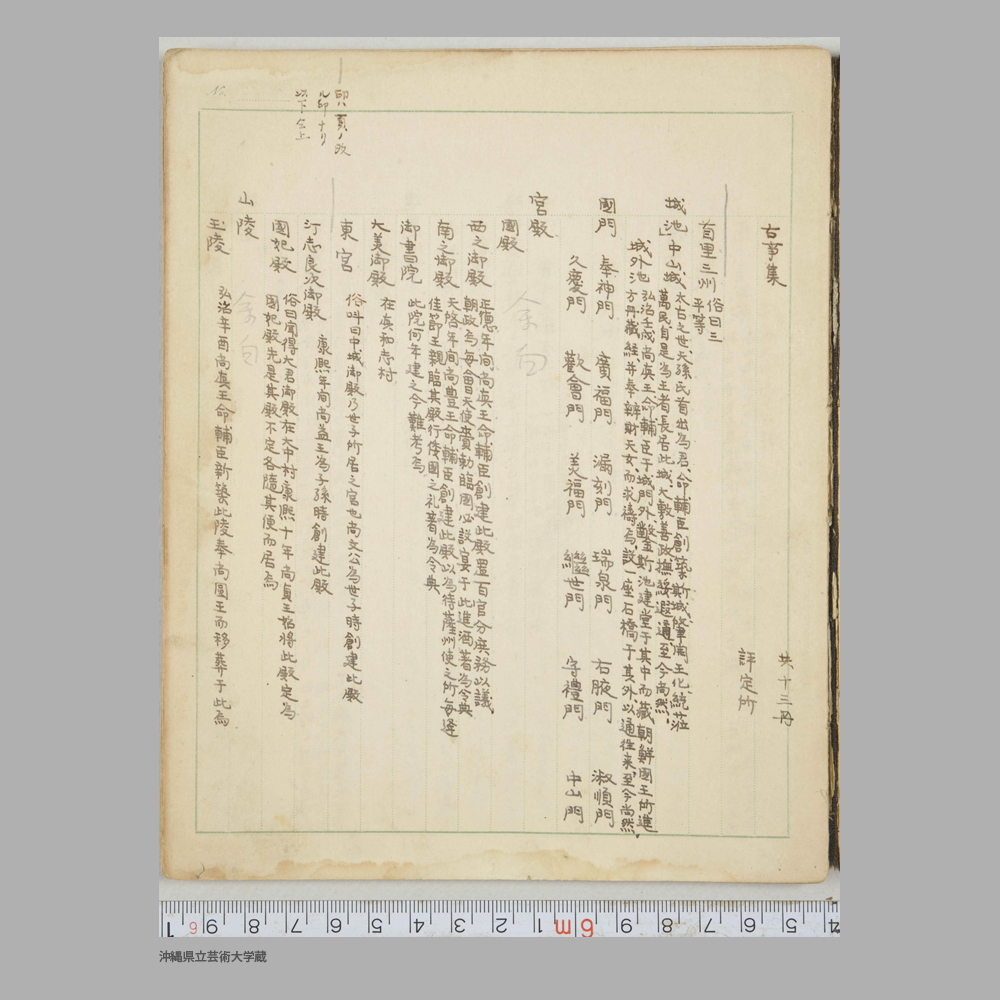 古事集
共十三冊
評定所
首里三州 俗曰三平等
城池
中山城 太古之世天孫氏首出為君命輔臣創築斯城肇開王化統茲
萬民自是為王者長居此城大敷善政撫綏遐邇至今尚然
城外池 弘治壬戌尚真王命輔臣于城門外鑿斯池建堂于其中而蔵朝鮮國王所進
方冊蔵経并奉辨財天女而求祷焉設一座石橋于其外以通往来至今尚然
國門 奉神門 廣福門 漏刻門 瑞泉門 右腋門 淑順門
久慶門 歡會門 美福門 繼世門 守禮門 中山門
宮殿
國殿 余白
西之御殿 正德年间尚真王命輔臣創建此殿置百官分庶務以議
朝政為毎會天使賚勅臨國必設宴于此進酒著為令典
南之御殿 天啓年间尚豊王命輔臣創建此殿以為待薩州使之所毎逢
佳節王親臨其殿行倭國之礼著為令典
御書院 此院何年建之今難考焉
大美御殿 在真和志村
東宮 俗叫曰中城御殿乃世子所居之宮也尚文公為世子時創建此殿
汀志良次御殿 康熙年间尚益王為子孫時創建此殿
國妃殿 俗曰聞得大君御殿在大中村康熙十年尚貞王始将此殿定為
國妃殿先是其殿不定各隨其便而居焉
山陵 余白
玉陵 弘治辛酉尚真王命輔臣新築此陵奉尚圓王而移葬于此焉
以下仝上
沖縄県立芸術大学蔵